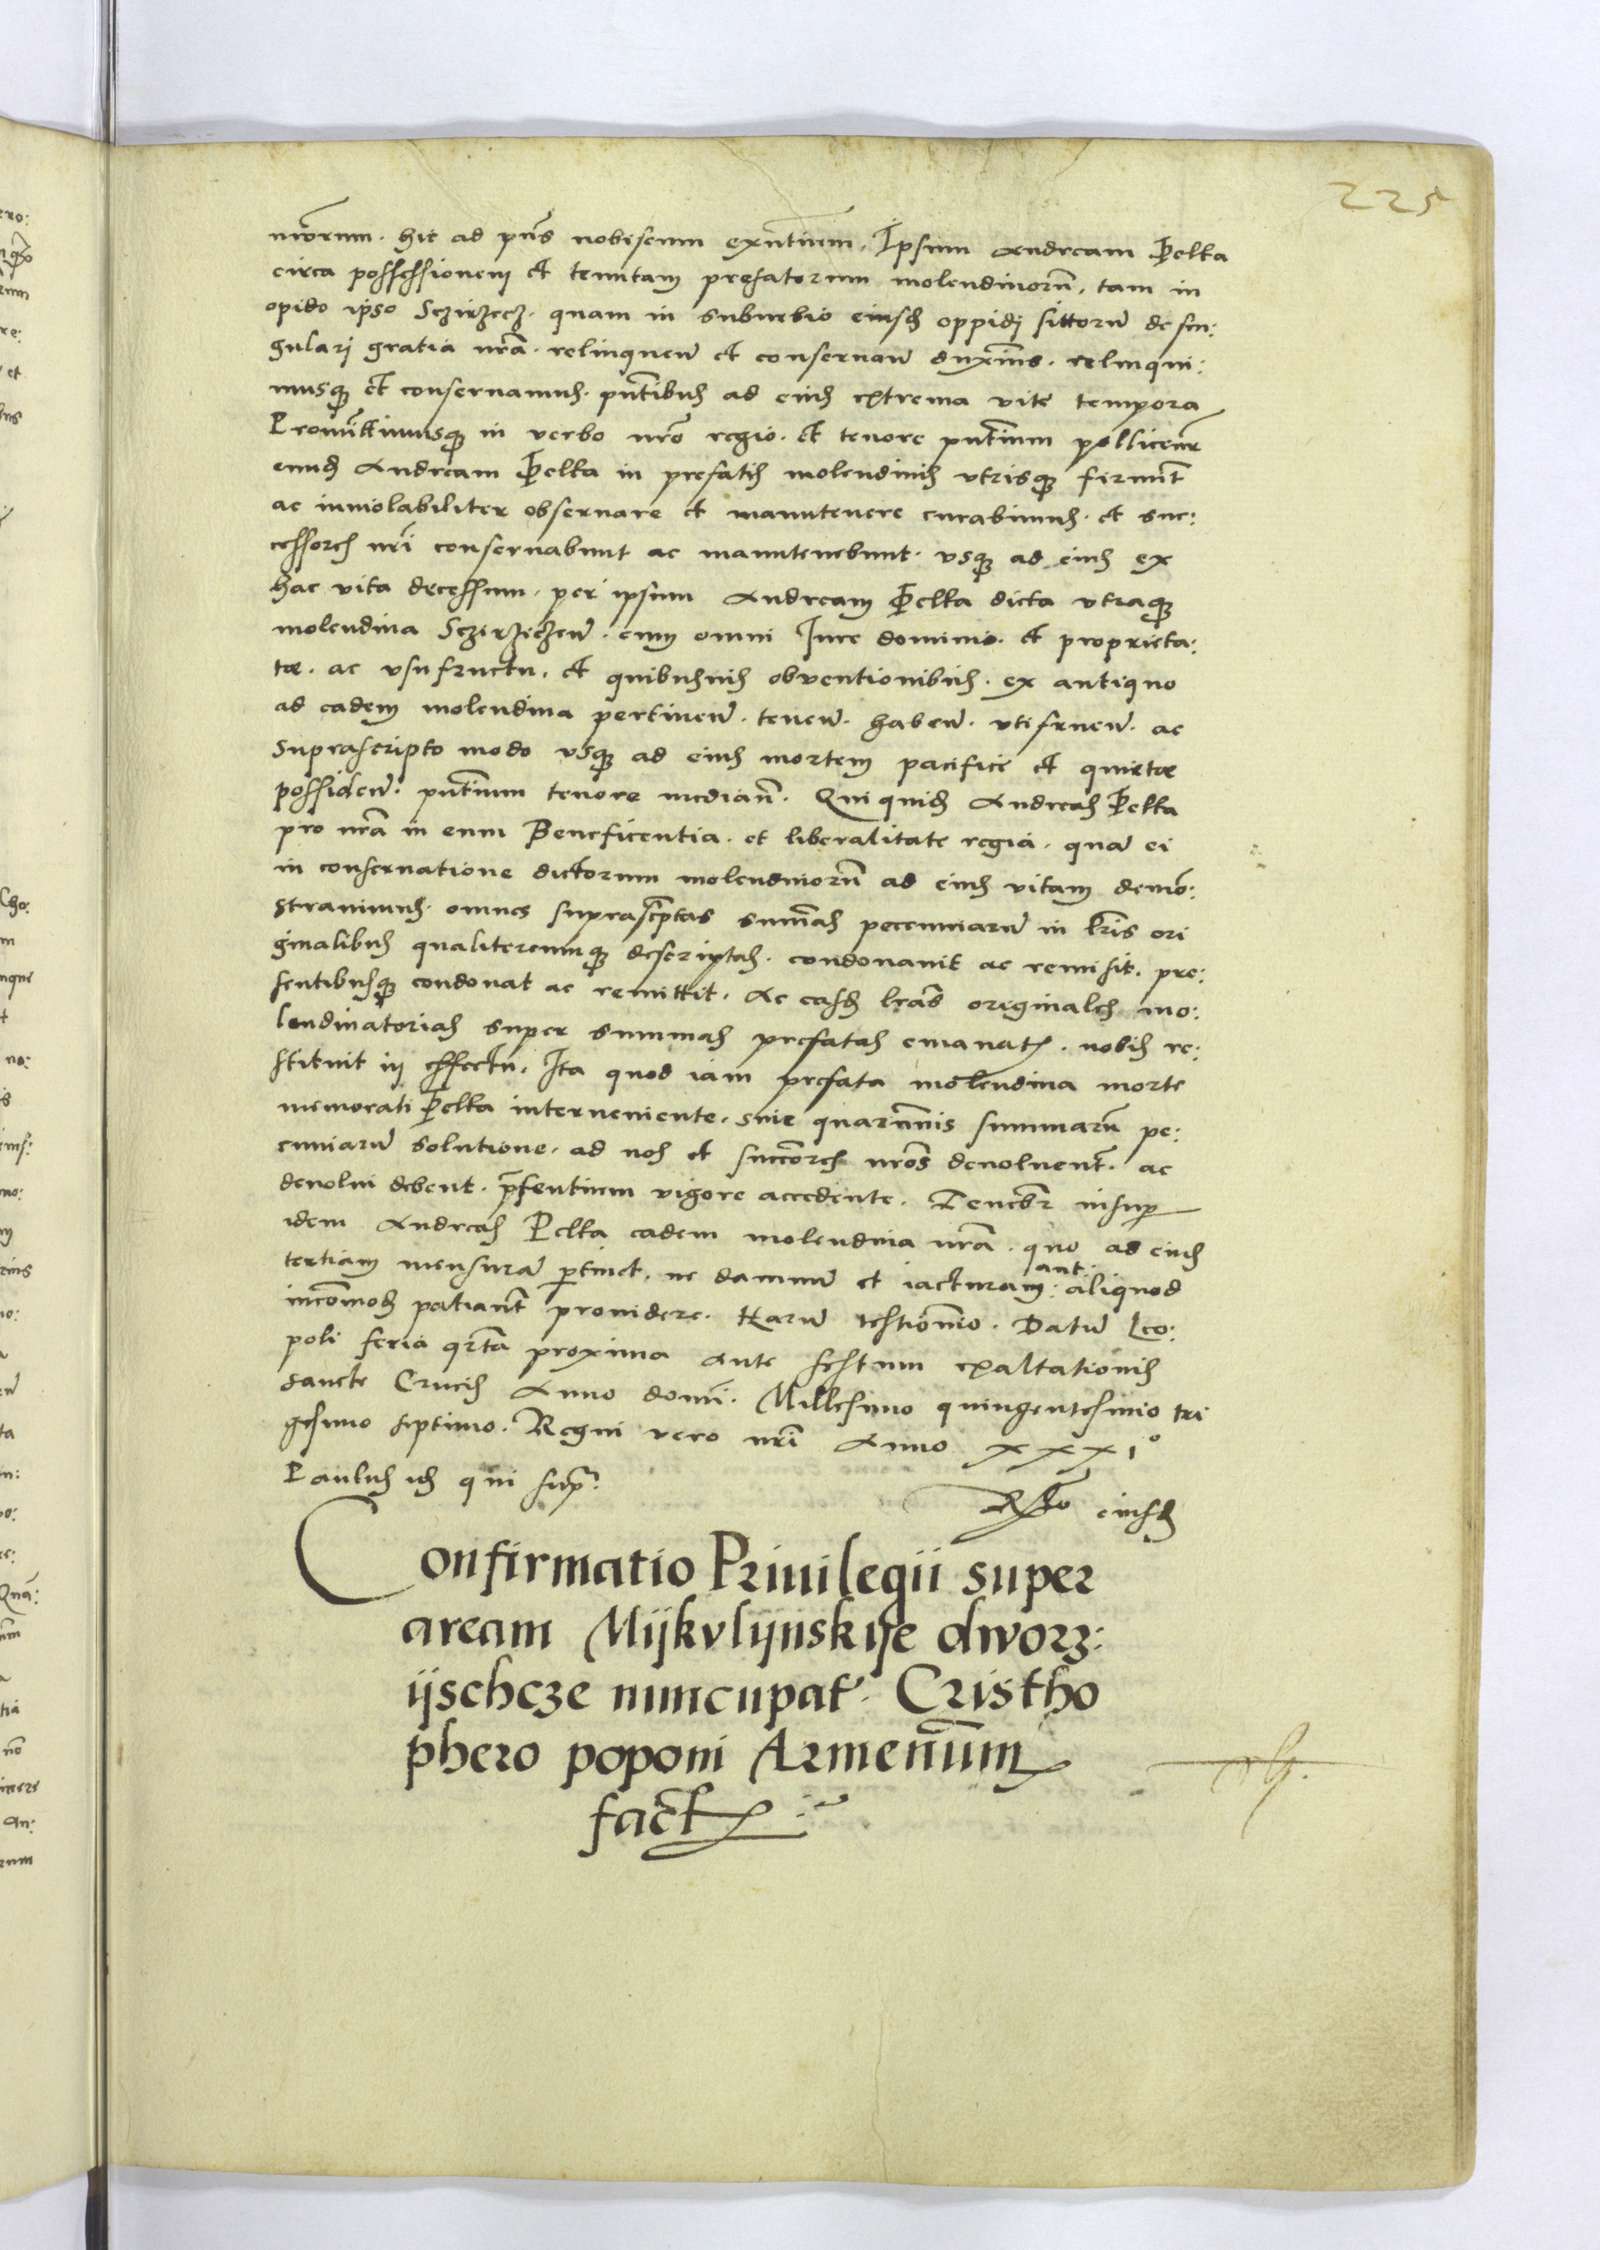 225
nrorum. hic ad pn̄s nobiscum exn̄tium. Ipsum Andream Pelka
circa possessionem et tenutam prefatorum molendinorū, tam in
opido ip̄so Sczirzecz. quam in suburbio eiusd oppidi sittorū de sin:
gulari gratia nr̄a. relinquen̄ et conseruan̄ duxim̄s. relinqui:
musqȝ et conseruamus. pn̄tibus ad eius extrema vite tempora
Promittimusqȝ in verbo nrō regio. et tenore pn̄tium pollicem̄r
eund Andream Pelka in prefatis molendinis vtrisqȝ firmit̄
ac inuiolabiliter obseruare et manutenere curabimus. et suc:
cessores nr̄i conseruabunt ac manutenebunt. vsqȝ ad eius ex
hac vita decessum. per ipsum Andream Pelka dicta vtraqȝ
molendina Sczirzeczen̄. cum omni Iure dominio. et proprieta:
te. ac vsufructu. et quibusuis obuentionibus. ex antiquo
ad eadem molendina pertinen̄. tenen̄. haben̄. vtifruen̄. ac
suprascripto modo vsqȝ ad eius mortem pacifice et quiete
possiden̄. pn̄tium tenore median̄. Qui quid Andreas Pelka
pro nr̄a in eum Beneficentia. et liberalitate regia. quā ei
in conseruatione dictorum molendinorū ad eius vitam demō:
strauimus. omnes suprascr̄ptas sum̄as pecuniarū in lr̄is ori
ginalibus qualitercumqȝ descriptas. condonauit ac remisit. pre:
sentibusqȝ condonat ac remittit. Ac easd lr̄as originales mo:
lendinatorias super summas prefatas emanat. nobis re:
stituit in effectu. Ita quod iam prefata molendina morte
memorati Pelka interueniente. sine quarumuis summarū pe:
cuniarū solutione. ad nos et succ̄ores nrōs deuoluent̄. ac
deuolui debent. pr̄sentium vigore accedente. Teneb̄r insup̄
idem Andreas Pelka eadem molendina nr̄a. quo ad eius
tertiam mensurā p̄tinet. ne damnū et iacturam: aut aliquod
incōmod patiant̄ prouidere. Harū testiōnio. Datū Leo:
poli feria qr̄ta proxima ante festum exaltationis
sancte Crucis Anno domi. Millesimo quingentesimo tri
gesimo septimo. Regni vero nr̄i Anno xxxiº
Paulus id qui sup̄.
Rlō eiusd
Confirmatio Priuilegii super
aream Mijkvlijnskije dworz:
ijschcze nuncupat̄. Cristho
phero poponi Armenūm
fact